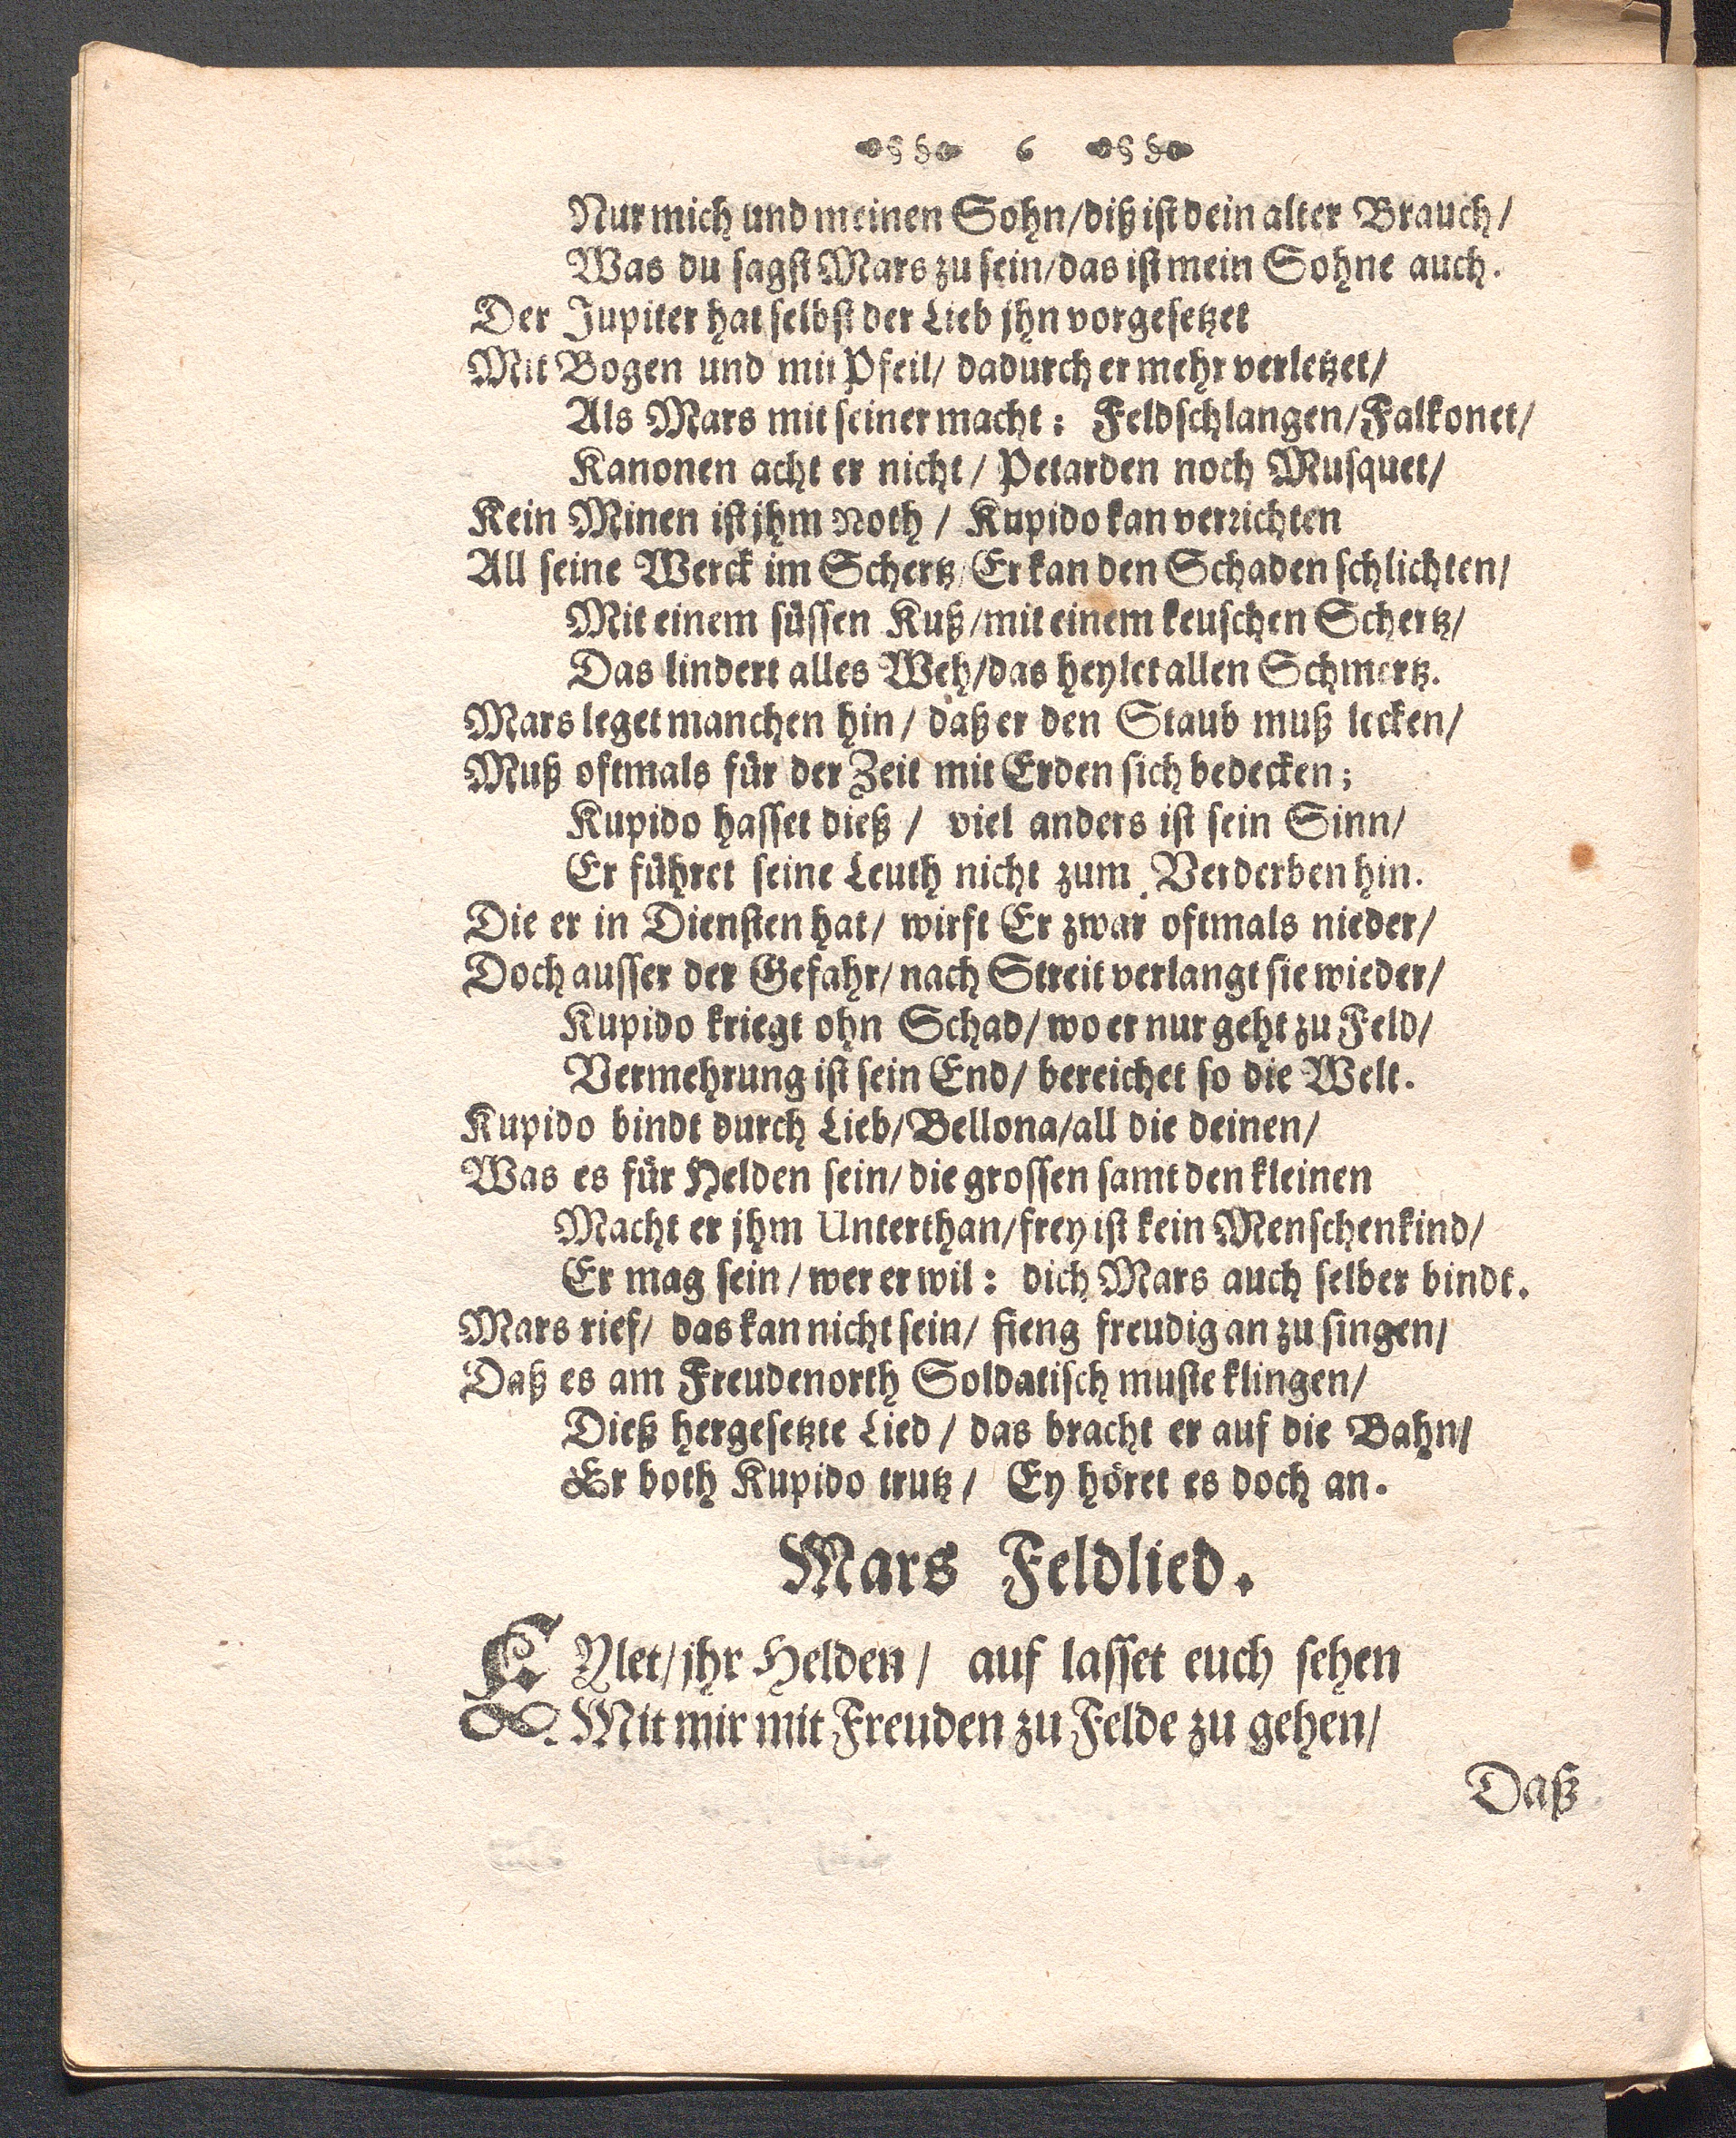 6
Nur mich und meinen Sohn/ diß ist dein alter Brauch/
Was du sagst Mars zu sein/ das ist mein Sohne auch.
Der Jupiter hat selbst der Lieb jhn vorgesetzet
Mit Bogen und mit Pfeil/ dadurch er mehr verletzet/
Als Mars mit seiner macht: Feldschlangen/ Falkonet/
Kanonen acht er nicht/ Petarden noch Musquet/
Kein Minen ist jhm Noth/ Kupido kan verrichten
All seine Werck im Schertz/ Er kan den Schaden schlichten/
Mit einem süssen Kuß/ mit einem keuschen Schertz/
Das lindert alles Weh/ das heylet allen Schmertz.
Mars leget manchen hin/ daß er den Staub muß lecken/
Muß oftmals für der Zeit mit Erden sich bedecken;
Kupido hasset dieß/ viel anders ist sein Sinn/
Er führet seine Leuth nicht zum Verderben hin.
Die er in Diensten hat/ wirft Er zwar oftmals nieder/
Doch ausser der Gefahr/ nach Streit verlangt sie wieder/
Kupido kriegt ohn Schad/ wo er nur geht zu Feld/
Vermehrung ist sein End/ bereichet so die Welt.
Kupido bindt durch Lieb/ Bellona/ all die deinen/
Was es für Helden sein/ die grossen samt den kleinen
Macht er jhm Unterthan/ frey ist kein Menschenkind/
Er mag sein/ wer er wil: dich Mars auch selber bindt.
Mars rief/ das kan nicht sein/ fieng freudig an zu singen/
Daß es am Freudenorth Soldatisch muste klingen/
Dieß hergesetzte Lied/ das bracht er auf die Bahn/
Er both Kupido trutz/ Ey höret es doch an.
Mars Feldlied.
EYlet/ jhr Helden/ auf lasset euch sehen
Mit mir mit Freuden zu Felde zu gehen/
Daß